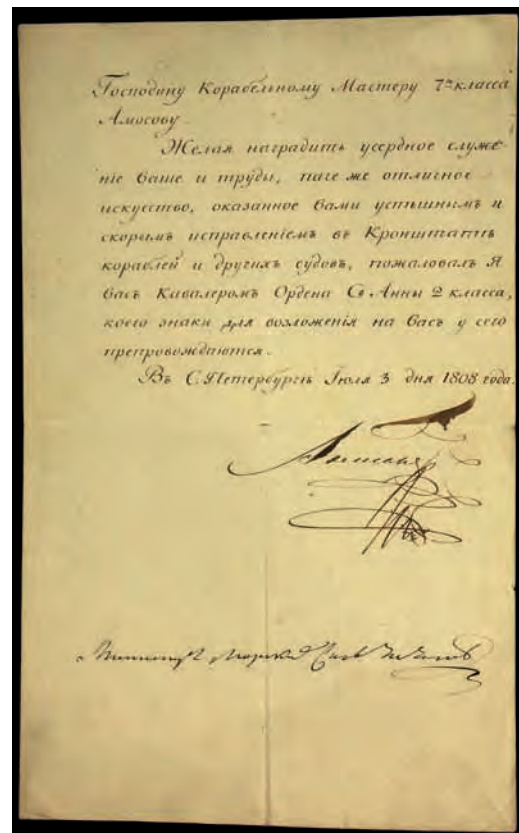 Господину Корабельному Мастеру 7го класса
Амосову.
Желая наградить усердное служе-
ніе ваше и труды, паче же отличное
искусство, оказанное вами успѣшнымъ и
скорымъ исправленіемъ въ Кронштатѣ
кораблей и другихъ судовъ, пожаловалъ Я
васъ Кавалеромъ Ордена Св Анны 2 класса,
коего знаки для возложенія на васъ у сего
препровождаются.
Въ С. Петербургѣ Іюля 3 дня 1808 года.
Александръ
Министръ Морскихъ Силъ